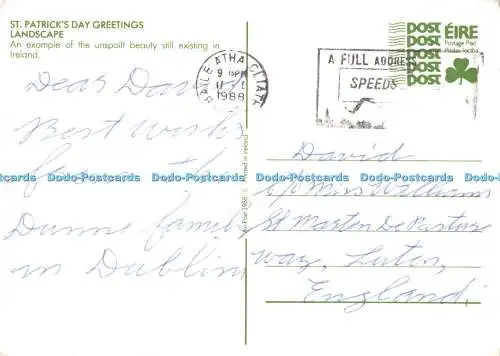 ST. PATRICK'S DAY GREETINGS
LANDSCAPE
An example of the unspoilt beauty still existing in
Ireland.
post post ÉIRE
post post Postage Paid
post post Postas Íoctha
post post
post post
BAILE ÁTHA CLIATH
9 15PM
1988
A FULL ADDRESS
SPEEDS
Dear David
Best Wishes
from the
Dunne family
in Dublin
An Post 1988 Printed in Ireland
David
c/o Mrs Williams
St Martin De Porres
Way, Luton,
England.
Dodo-Postcards Dodo-Postcards Dodo-Postcards Dodo-Postcards